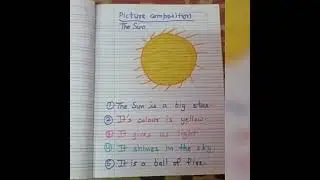 Picture composition
The Sun.
① The Sun is a big star
② It's colour is yellow.
③ It gives us light.
④ It shines in the sky.
⑤ It is a ball of fire.